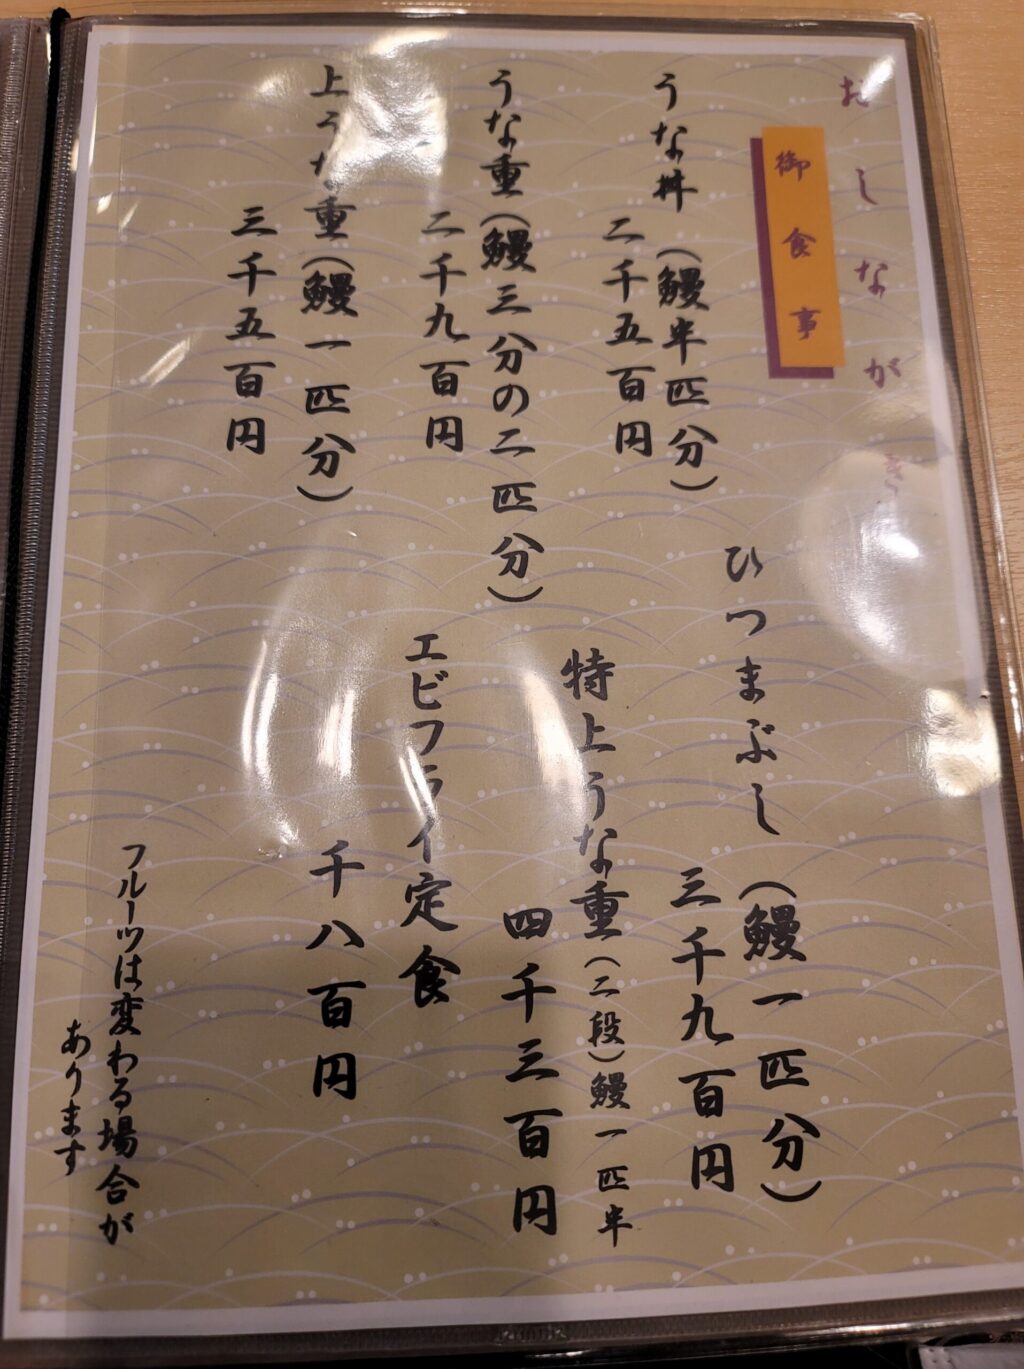 おしながき
御食事
うな丼(鰻半匹分)
二千五百円
うな重(鰻三分の二匹分)
二千九百円
上うな重(鰻一匹分)
三千五百円
ひつまぶし(鰻一匹分)
三千九百円
特上うな重(二段)鰻一匹半
四千三百円
エビフライ定食
千八百円
フルーツは変わる場合が
あります